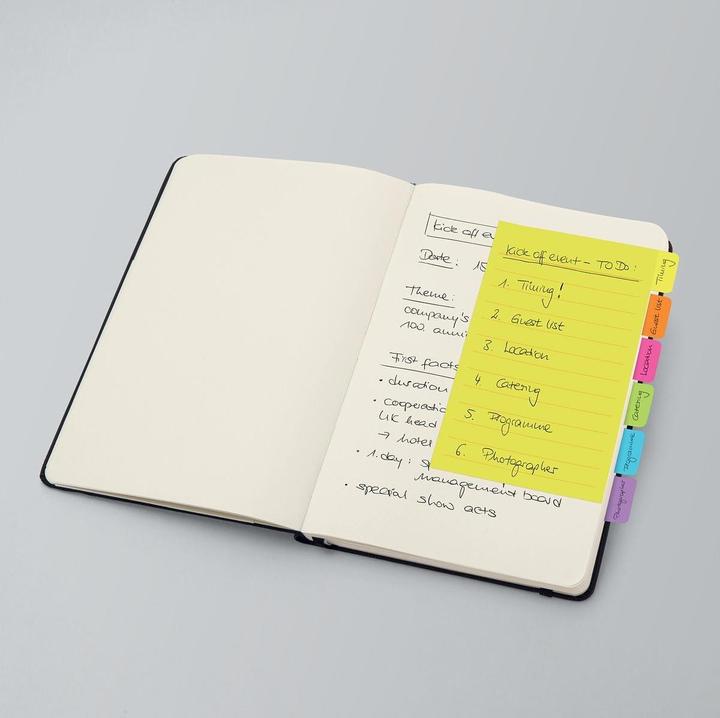 Kick off ev
Date: 15
Theme:
company's
100 anni
First facts
• duration
• cooperatio
UK head
→ hotel
• 1. day: sp
management board
• special show acts
Kick off event – TO Do:
1. Timing!
2. Guest list
3. Location
4 Catering
5. Programme
6. Photographer
Timing
Guest list
Location
Catering
Programme
Photographer